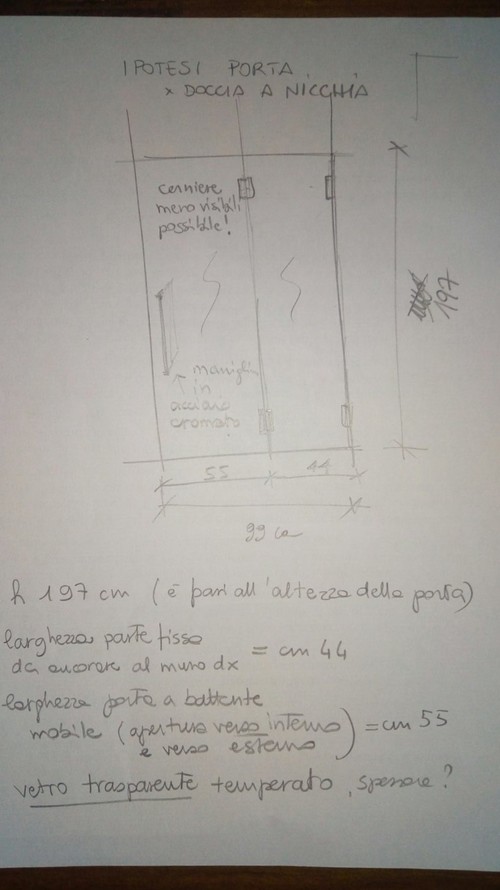 IPOTESI PORTA
x DOCCIA A NICCHIA
cerniere
meno visibili
possibile!
197
maniglia
in
acciaio
cromato
55
44
99 ca
h 197 cm (è pari all'altezza della porta)
larghezza parte fissa
da ancorare al muro dx = cm 44
larghezza porta a battente
mobile (apertura verso interno
e verso esterno) = cm 55
vetro trasparente temperato, spessore?